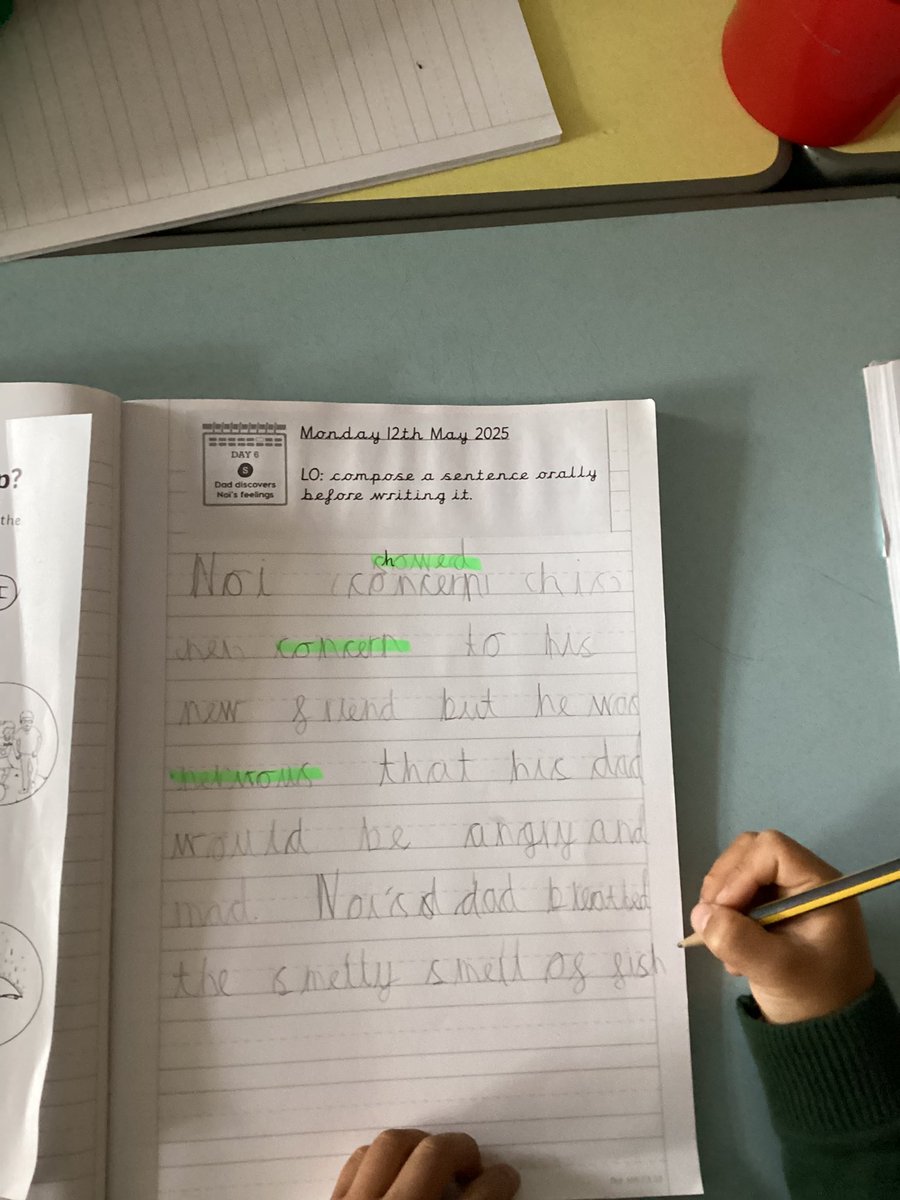 p?
the
DAY 6
S
Dad discovers
Noi's feelings
Monday 12th May 2025
LO: compose a sentence orally
before writing it.
chowed
Noi concern his
her concern to his
new friend but he was
nervous that his dad
would be angry and
mad. Noi's dad breathed
the smelly smell of fish